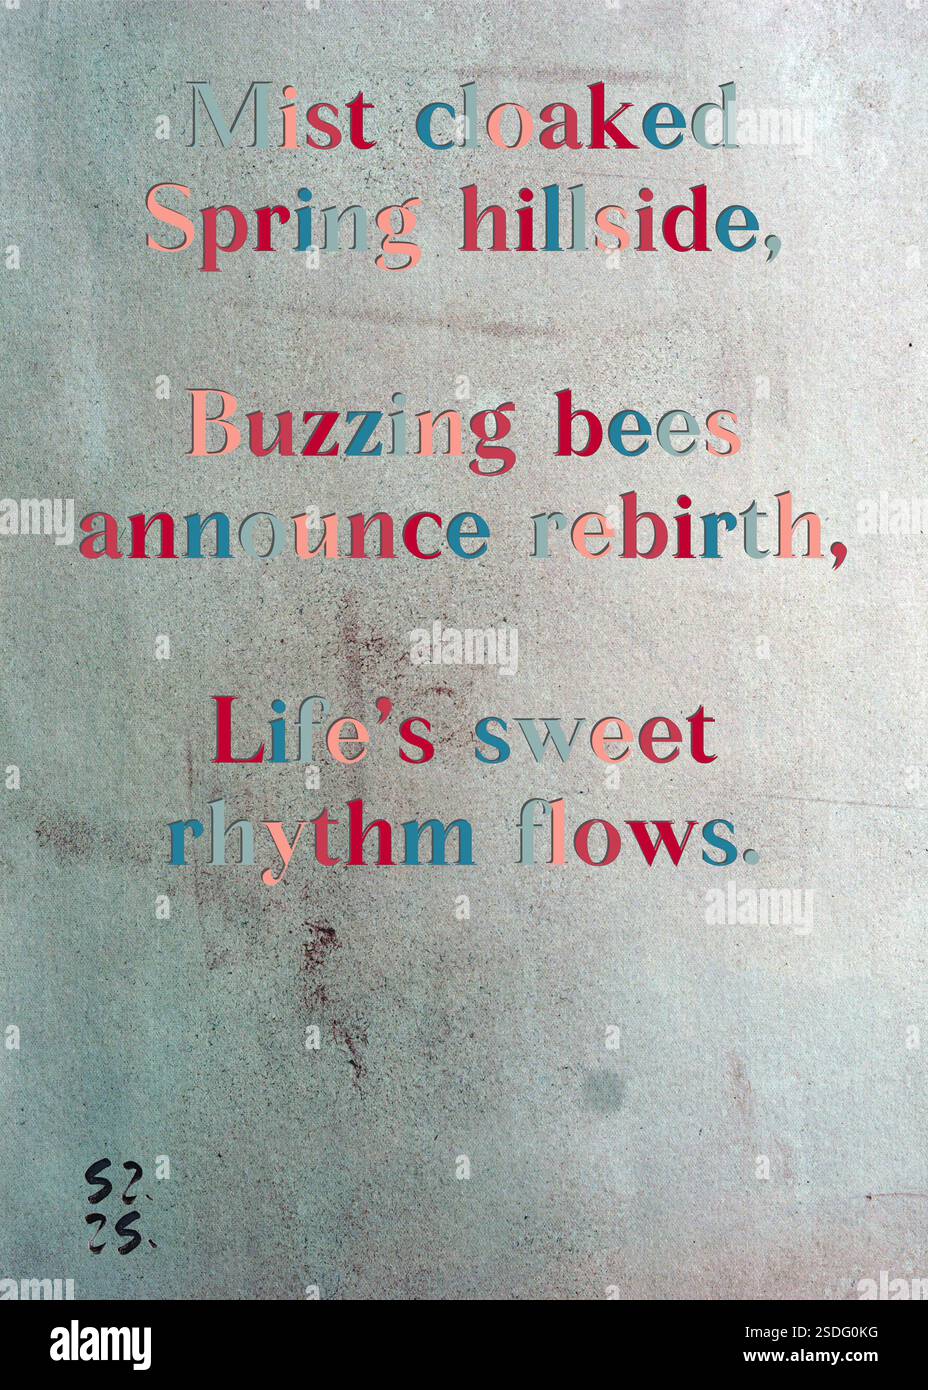 Mist cloaked
Spring hillside,
Buzzing bees
announce rebirth,
Life’s sweet
rhythm flows.
SZ.
25.
alamy
Image ID: 2SDG0KG
www.alamy.com